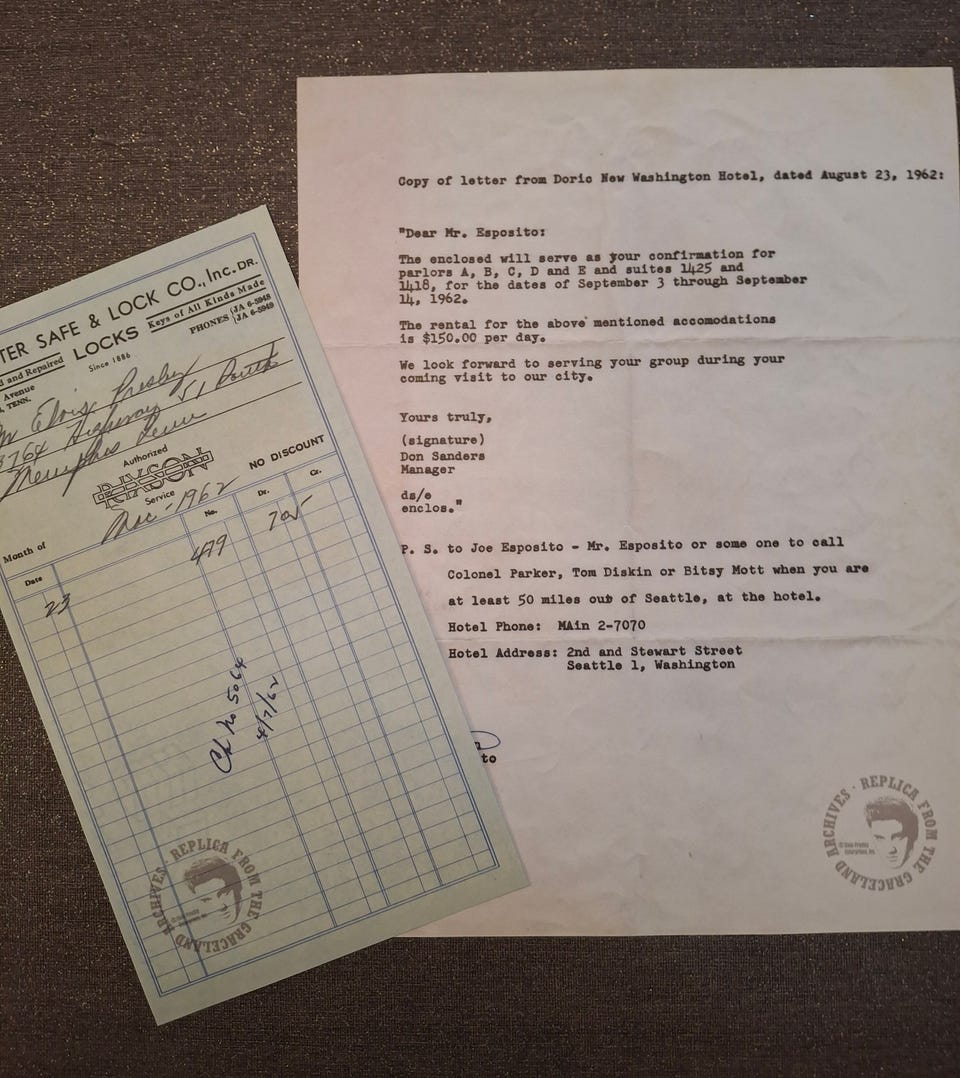 TER SAFE & LOCK CO., Inc. DR.
d and Repaired LOCKS Keys of All Kinds Made
Avenue Since 1886 PHONES {JA 6-5948
, TENN. {JA 6-5949
Elvis Presley
3764 Highway 51 South
Memphis Tenn
Authorized
RYKSON
Service
NO DISCOUNT
Month of Mac - 1962
Date No. Dr. Cr.
23 479 705
Ck No 5064
4/7/62
REPLICA FROM THE GRACELAND ARCHIVES ·
© Elvis Presley
Enterprises, Inc.
Copy of letter from Doric New Washington Hotel, dated August 23, 1962:
"Dear Mr. Esposito:
The enclosed will serve as your confirmation for
parlors A, B, C, D and E and suites 1425 and
1418, for the dates of September 3 through September
14, 1962.
The rental for the above mentioned accomodations
is $150.00 per day.
We look forward to serving your group during your
coming visit to our city.
Yours truly,
(signature)
Don Sanders
Manager
ds/e
enclos."
P. S. to Joe Esposito - Mr. Esposito or some one to call
Colonel Parker, Tom Diskin or Bitsy Mott when you are
at least 50 miles out of Seattle, at the hotel.
Hotel Phone: MAin 2-7070
Hotel Address: 2nd and Stewart Street
Seattle 1, Washington
to
REPLICA FROM THE GRACELAND ARCHIVES ·
© Elvis Presley
Enterprises, Inc.